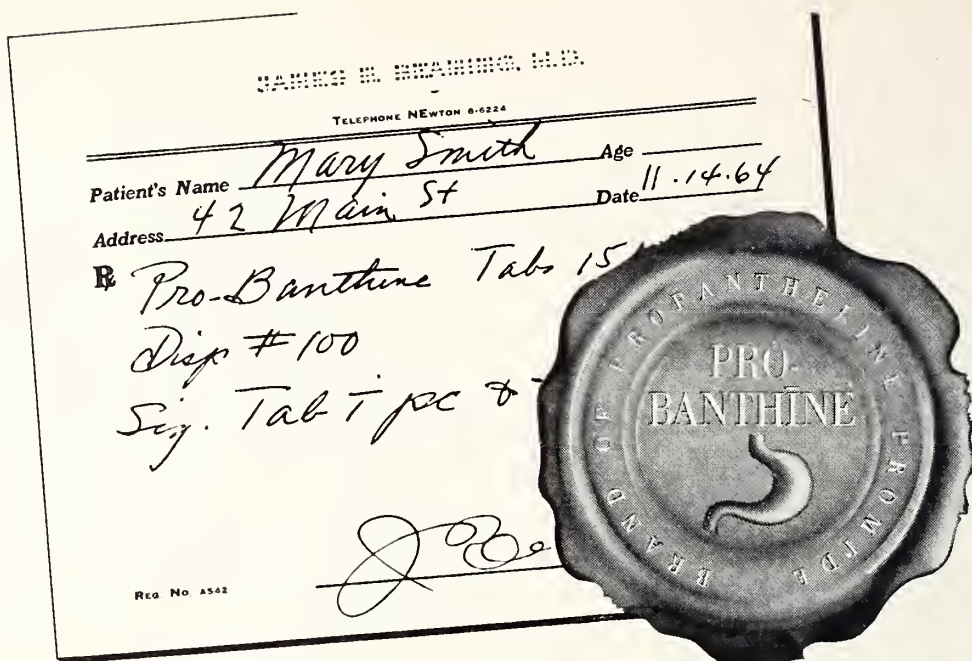 JAMES E. M.D.
TELEPHONE NEWTON 6-6224
Patient's Name Mary Smith Age
Address 42 Main St Date 11.14.64
℞ Pro-Banthine Tabs 15
Disp # 100
Sig. Tab i pc &
REG. NO. A542
BRAND OF PROPANTHELINE BROMIDE
PRO-
BANTHĪNE